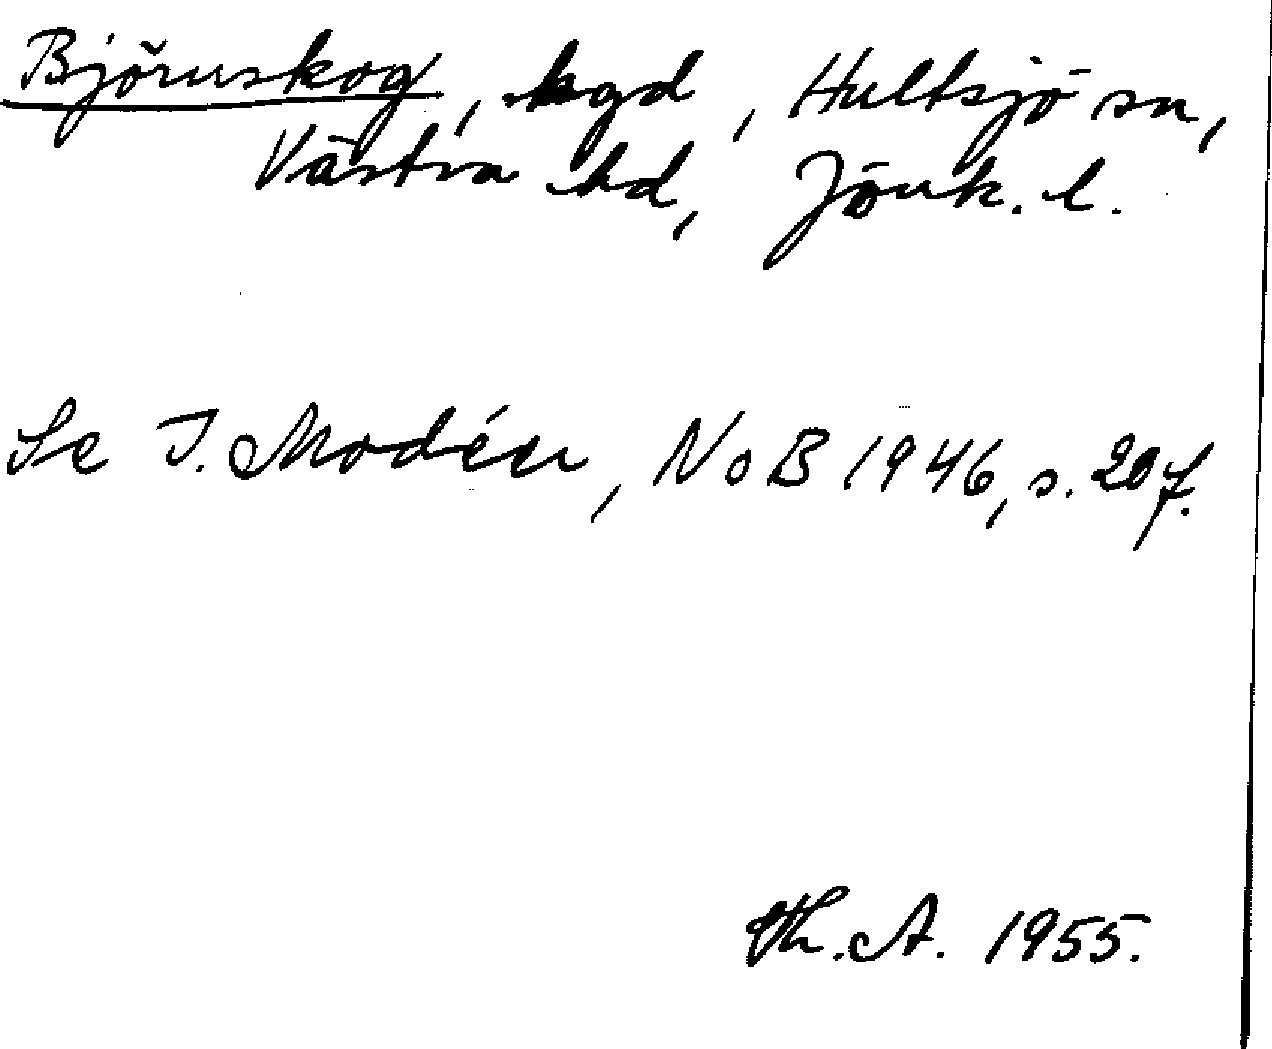 Björnskog, hgd, Hultsjö sn,
Västra hd, Jönk. l.
Se I. Modéer, NoB 1946, s. 20 f.
Th. A. 1955.